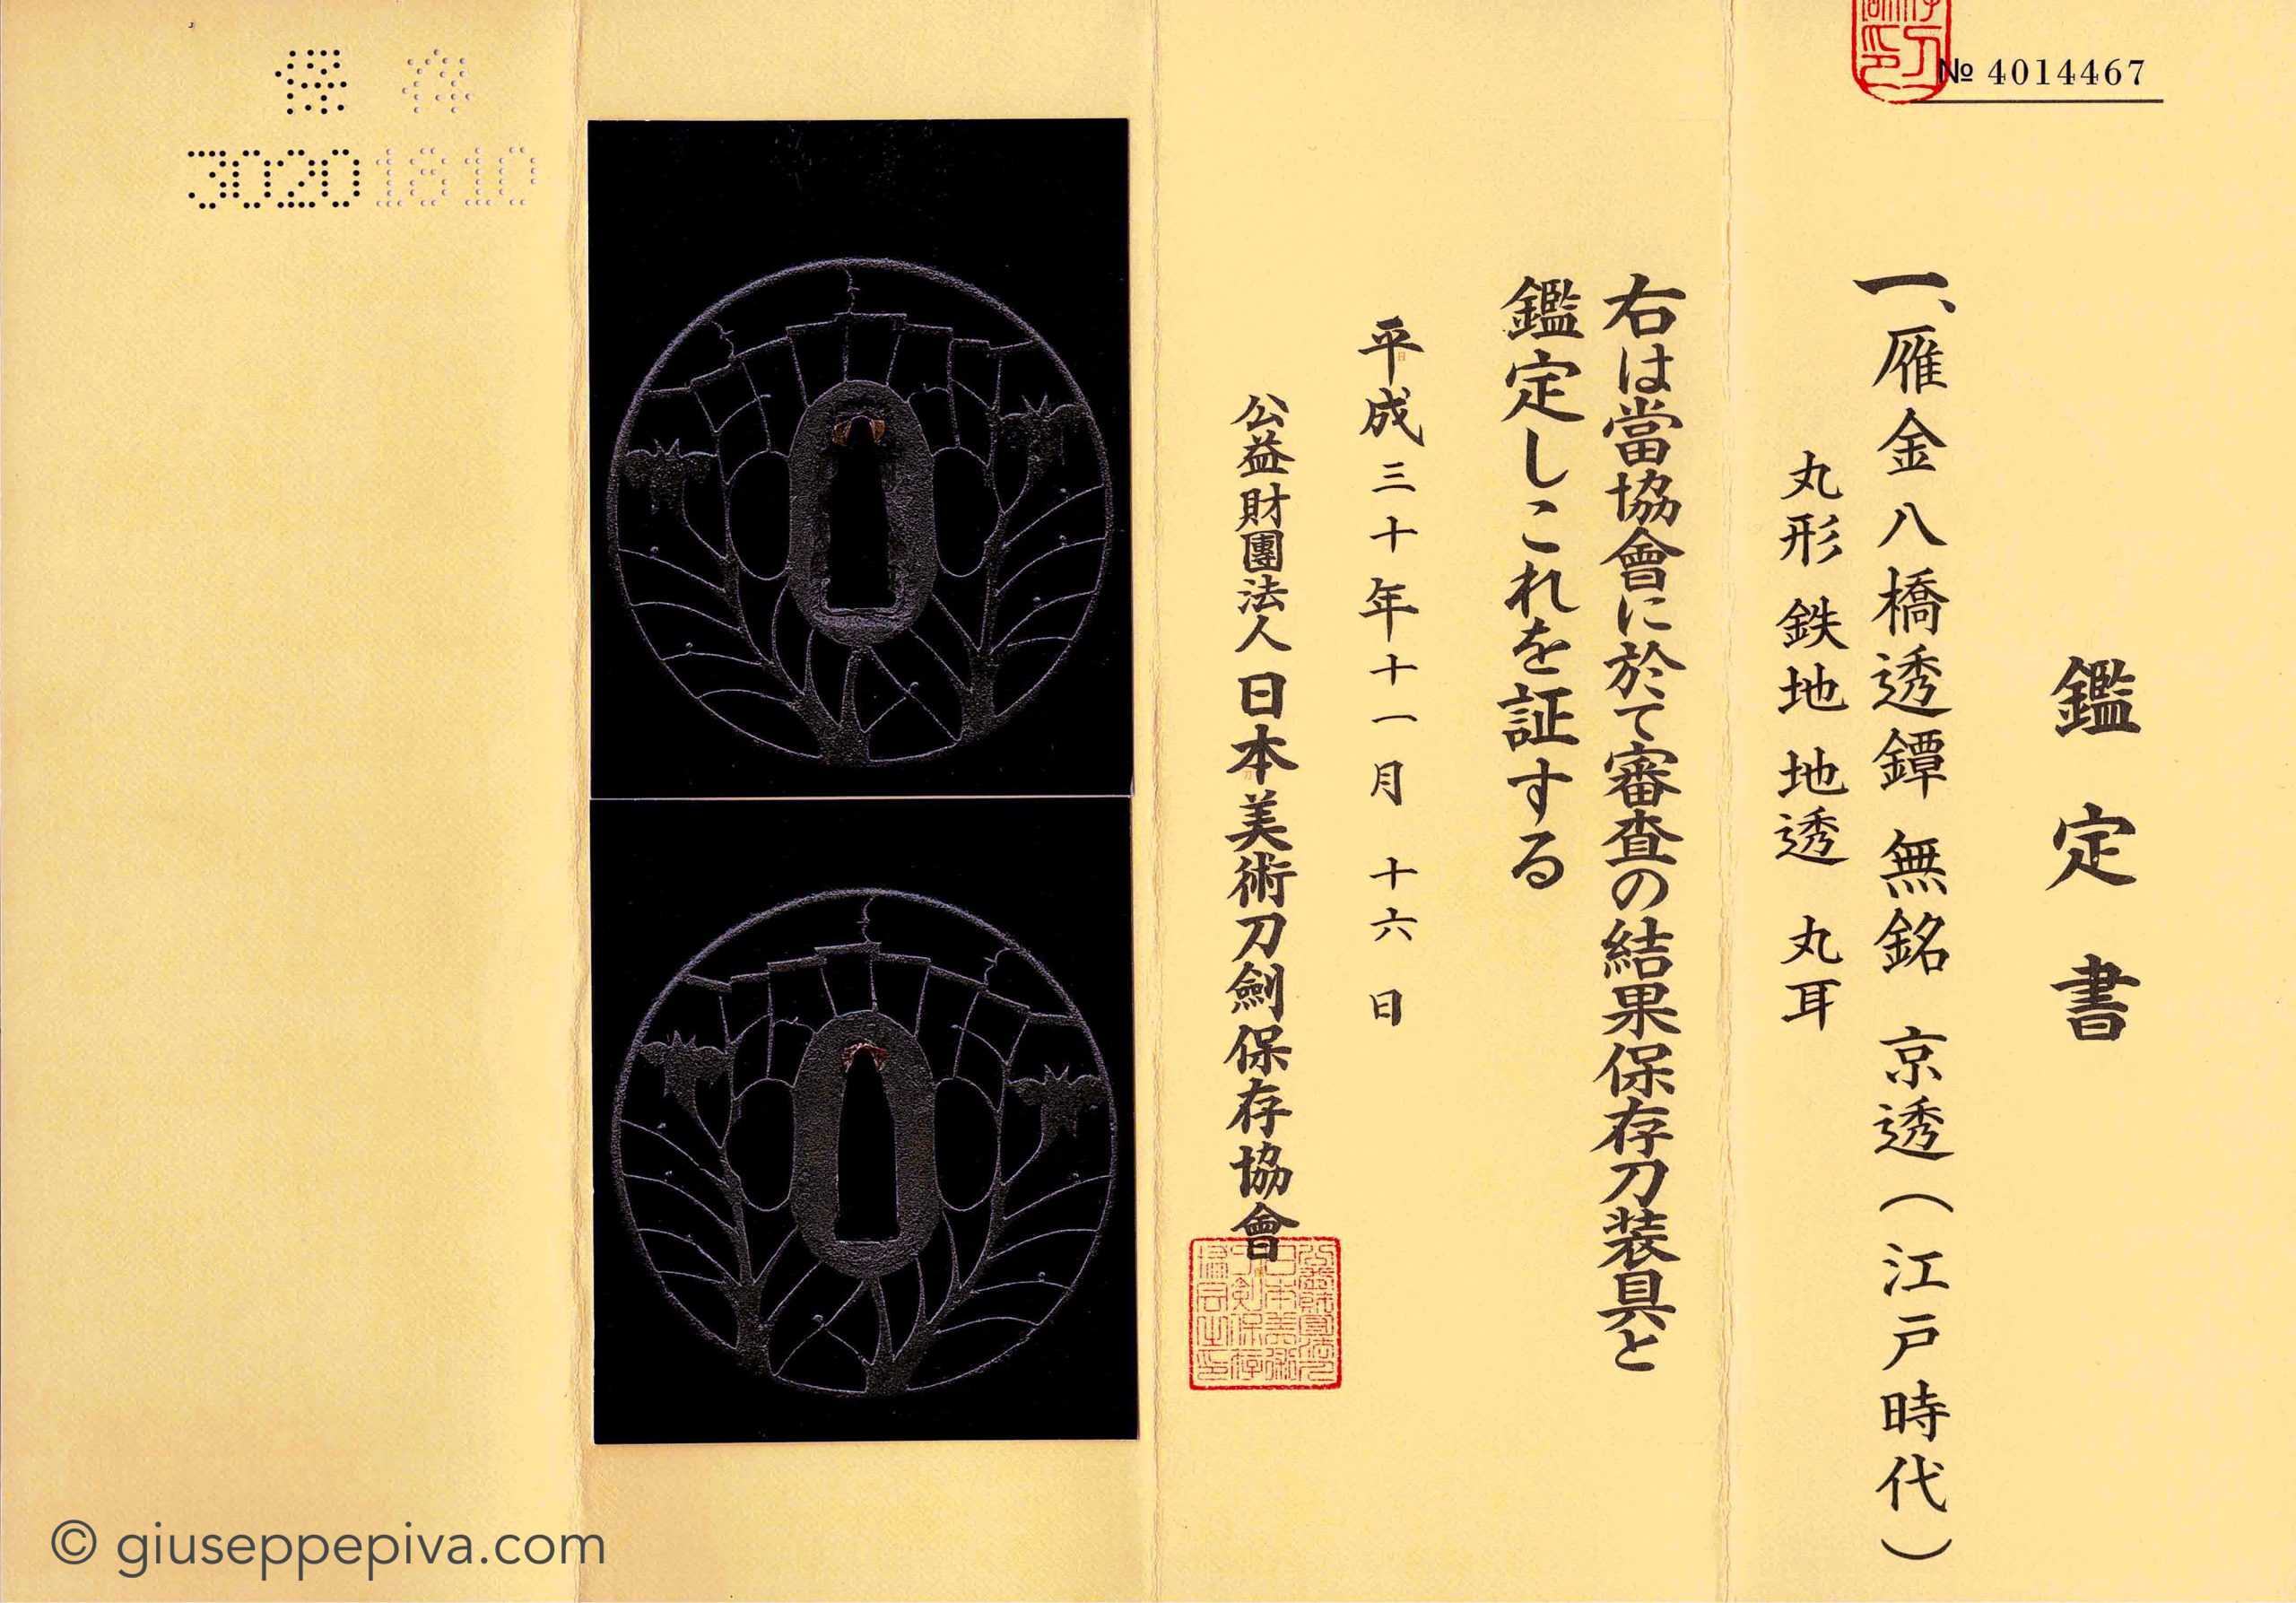 № 4014467
鑑定書
一、雁金八橋透鐔 無銘 京透（江戸時代）
丸形 鉄地 地透 丸耳
右は當協會に於て審査の結果保存刀装具と
鑑定しこれを証する
平成三十年十一月 十六 日
公益財團法人 日本美術刀劍保存協會
保存
© giuseppepiva.com